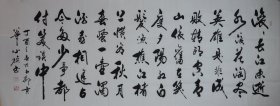 滚々长江东逝
水浪花淘尽英
雄是非成
败转头空青
山依旧在几
度夕阳红白
髮渔樵江渚
上惯看秋月
春风一壶浊
酒喜相逢古
今多少事都
付笑谈中
丁酉年